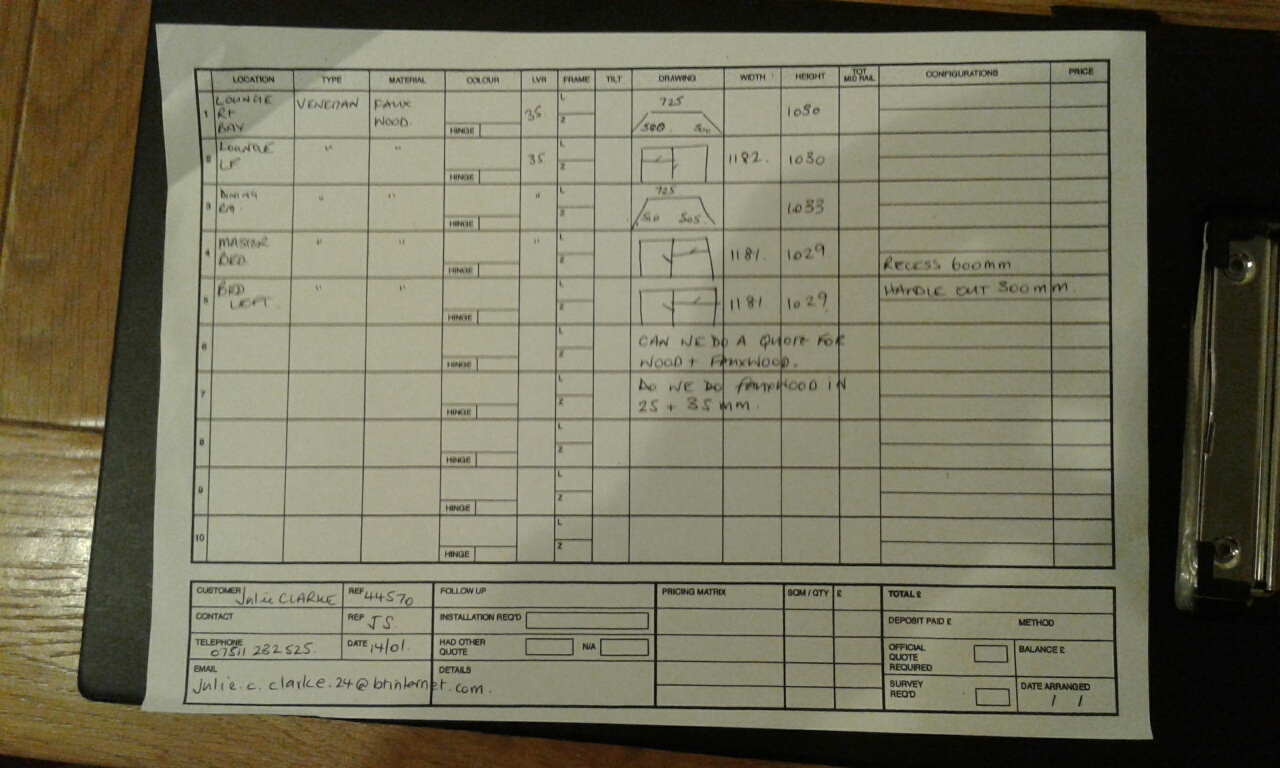 LOCATION TYPE MATERIAL COLOUR LVR FRAME TILT DRAWING WIDTH HEIGHT TOT MID RAIL CONFIGURATIONS PRICE
1 LOUNGE RT BAY VENETIAN FAUX WOOD. HINGE 35. L Z 725 500. 500 1030
2 LOUNGE LF " " HINGE 35 L Z 1182. 1030
3 DINING RM. " " HINGE " L Z 725 510 505. 1033
4 MASTER BED. " " HINGE " L Z 1181. 1029 RECESS 600mm
5 BED LEFT. " " HINGE L Z 1181. 1029. HANDLE OUT 300mm.
6 HINGE L Z CAN WE DO A QUOTE FOR
WOOD + FAUXWOOD.
7 HINGE L Z DO WE DO FAUXWOOD IN
25 + 35 mm.
8 HINGE L Z
9 HINGE L Z
10 HINGE L Z
CUSTOMER Julie CLARKE REF 44570
CONTACT REP JS.
TELEPHONE 07511 282525. DATE 14/01.
EMAIL
julie.c.clarke.24@btinternet.com.
FOLLOW UP
INSTALLATION REQ'D
HAD OTHER QUOTE N/A
DETAILS
PRICING MATRIX SQM / QTY £
TOTAL £
DEPOSIT PAID £ METHOD
OFFICIAL QUOTE REQUIRED BALANCE £
SURVEY REQ'D DATE ARRANGED
/ /